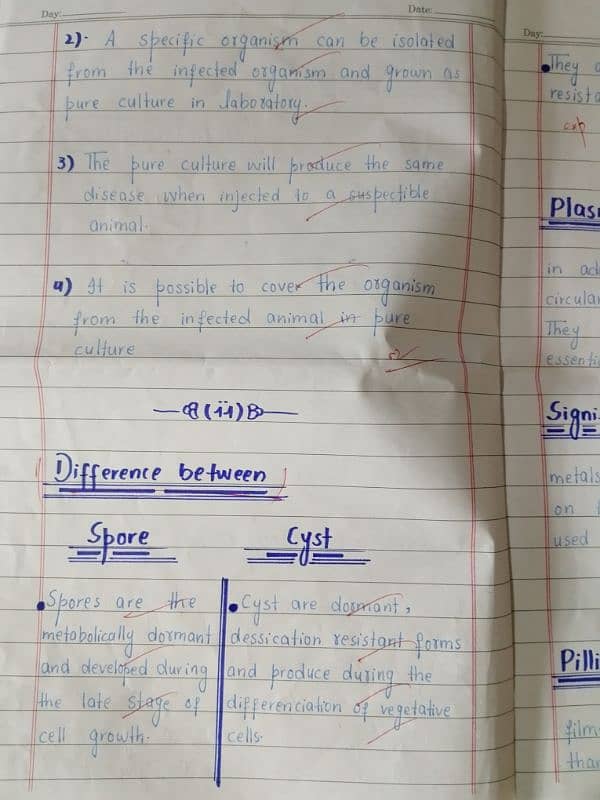 Day:
Date:
2) A specific organism can be isolated
from the infected organism and grown as
pure culture in laboratory.
3) The pure culture will produce the same
disease when injected to a suspectible
animal.
4) It is possible to cover the organism
from the infected animal in pure
culture
(ii)
Difference between
Spore
Cyst
• Spores are the
metabolically dormant
and developed during
the late stage of
cell growth.
• Cyst are dormant,
dessication resistant forms
and produce during the
differenciation of vegetative
cells.
Day:
• They
in
They
on
used